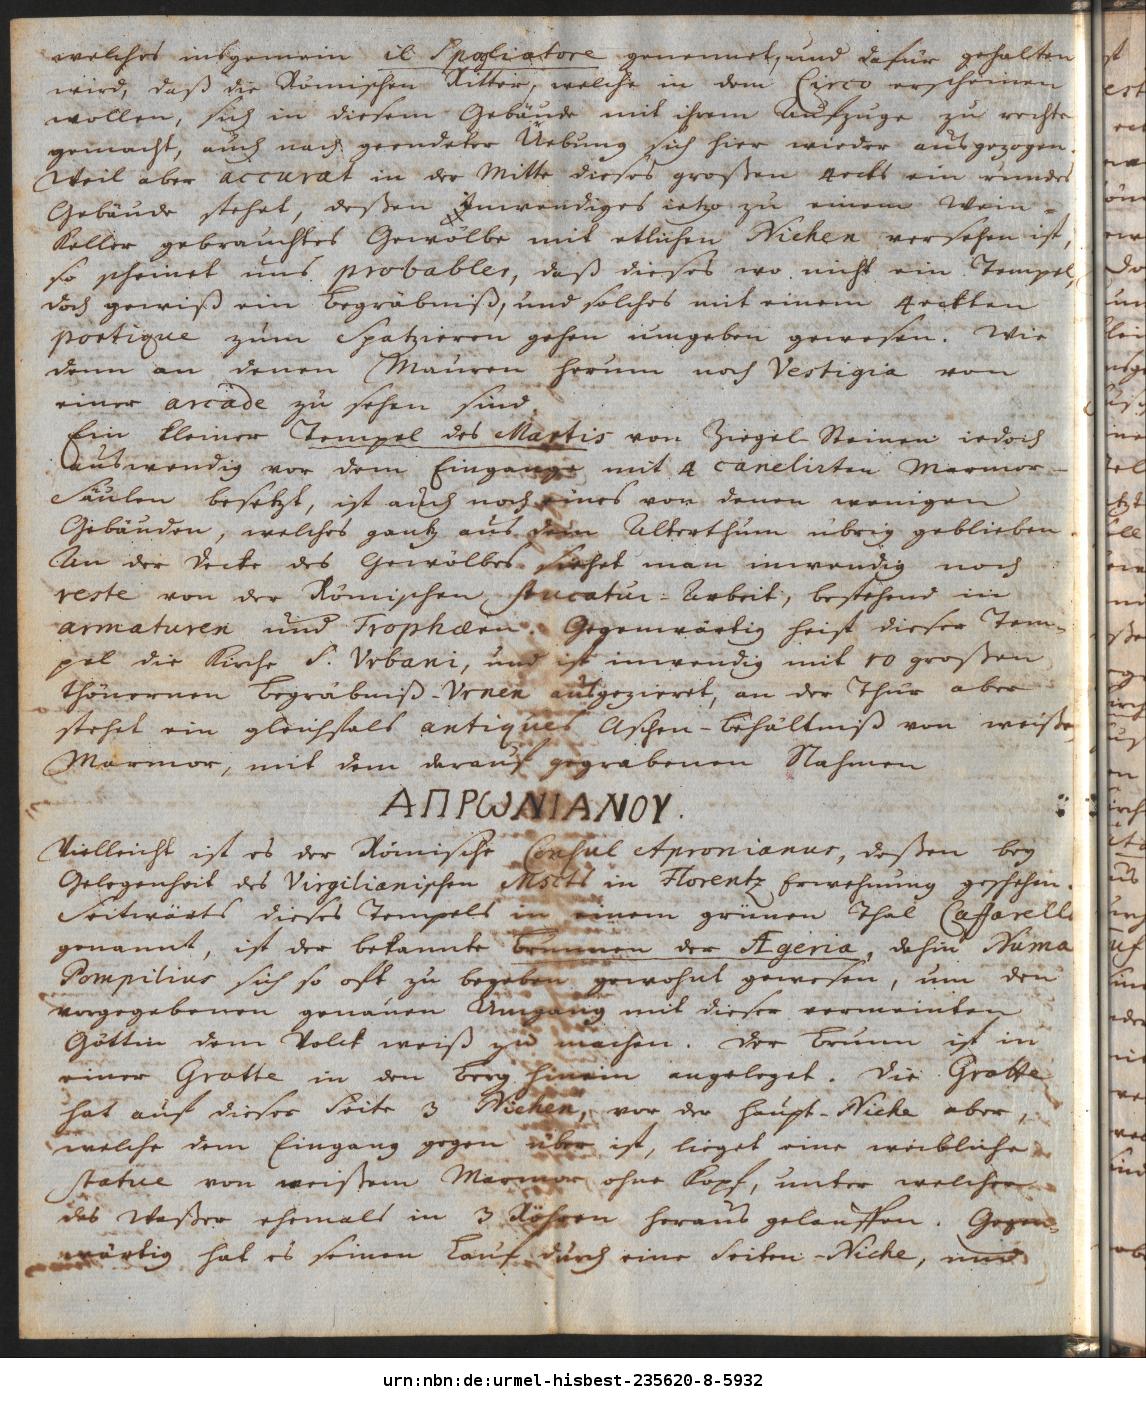 welches insgemein il Spogliatore genennet, und dafür gehalten
wird, daß die Römischen Ritter, welche in dem Circo erscheinen
wollen, sich in diesem Gebäude mit ihrem Aufzuge zu rechte
gemacht, auch nach geendeter Uebung sich hier wieder ausgezogen.
Weil aber accurat in der Mitte dieses großen 4ecks ein rundes
Gebäude stehet, deßen inwendiges ietzo zu einem Wein-
Keller gebrauchtes Gewölbe mit etlichen Nichen versehen ist,
so scheinet uns probabler, daß dieses wo nicht ein Tempel,
doch gewiß ein Begräbniß, und solches mit einem 4eckten
portique zum Spatzieren gehen umgeben gewesen. Wie
denn an denen Mauren herum noch Vestigia von
einer arcade zu sehen sind.
Ein kleiner Tempel des Martis von Ziegel Steinen iedoch
auswendig vor dem Eingange mit 4 canelirten Marmor-
Säulen besetzt, ist auch noch eines von denen wenigen
Gebäuden, welches gantz aus dem Alterthum übrig geblieben
An der Decke des Gewölbes siehet man inwendig noch
reste von der Römischen stucatur-Arbeit, bestehend in
armaturen und Trophæen. Gegenwärtig heist dieser Tem-
pel die Kirche S. Urbani, und ist inwendig mit 10 großen
thönernen Begräbniß-Urnen ausgezieret, an der Thür aber
stehet ein gleichfals antiques Aschen-Behältniß von weiße
Marmor, mit dem darauf gegrabenen Nahmen
ΑΠΡΩΝΙΑΝΟΥ.
Vielleicht ist es der Römische Consul Apronianus, deßen bey
Gelegenheit des Virgilianischen Mscts in Florentz Erwehnung geschehen.
Seitwärts dieses Tempels in einem grünen Thal Caffarella
genannt, ist der bekannte Brunnen der Ægeria, dahin Numa
Pompilius sich so oft zu begeben gewohnt gewesen, um den
vorgegebenen genauen Umgang mit dieser vermeinten
Göttin dem Volck weiß zu machen. Der Brunn ist in
einer Grotte in den Berg hinein angeleget. Die Grotte
hat auf dieser Seite 3 Nichen, vor der Haupt-Niche aber,
welche dem Eingang gegen über ist, lieget eine weibliche
statue von weißem Marmor ohne Kopf, unter welcher
das Waßer ehemals in 3 Röhren heraus gelauffen. Gegen-
wärtig hat es seinen Lauf durch eine Seiten-Niche, und
urn:nbn:de:urmel-hisbest-235620-8-5932